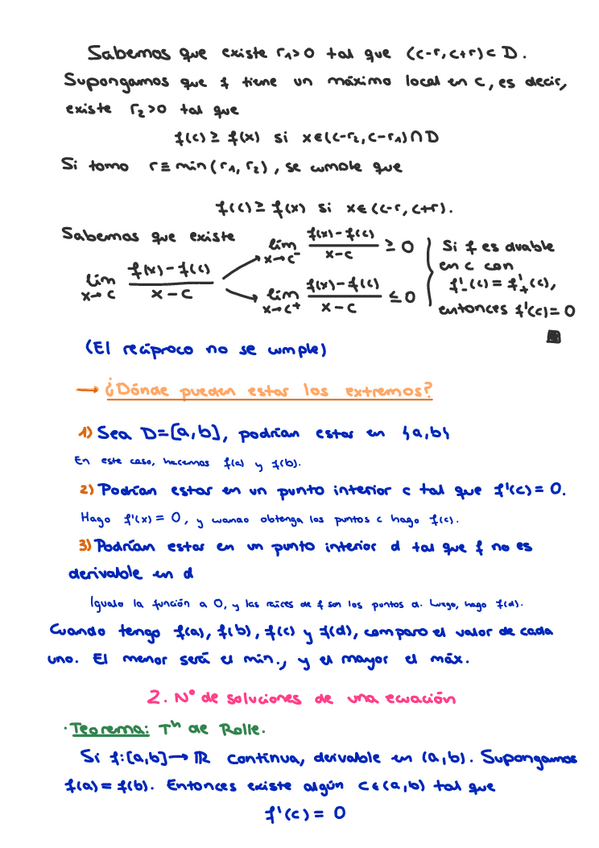 Sabemos que existe r₁>0 tal que (c-r, c+r)⊂D.
Supongamos que f tiene un máximo local en c, es decir,
existe r₂>0 tal que
f(c) ≥ f(x) si x∈(c-r₂, c-r₁)∩D
Si tomo r≡min(r₁, r₂), se cumple que
f(c) ≥ f(x) si x∈(c-r, c+r).
Sabemos que existe
lim x→c (f(x)-f(c))/(x-c)
lim x→c⁻ (f(x)-f(c))/(x-c) ≥ 0
lim x→c⁺ (f(x)-f(c))/(x-c) ≤ 0
Si f es dvable
en c con
f'₋(c) = f'₊(c),
entonces f'(c)=0
(El recíproco no se cumple)
→ ¿Dónde pueden estar los extremos?
1) Sea D=[a,b], podrían estar en {a,b}
En este caso, hacemos f(a) y f(b).
2) Podrían estar en un punto interior c tal que f'(c)=0.
Hago f'(x)=0, y cuando obtenga los puntos c hago f(c).
3) Podrían estar en un punto interior d tal que f no es
derivable en d
Igualo la función a 0, y las raíces de f son los puntos d. Luego, hago f(d).
Cuando tengo f(a), f(b), f(c) y f(d), comparo el valor de cada
uno. El menor será el mín., y el mayor el máx.
2. Nº de soluciones de una ecuación
· Teorema: Tʰ de Rolle.
Si f:[a,b]→ℝ continua, derivable en (a,b). Supongamos
f(a)=f(b). Entonces existe algún c∈(a,b) tal que
f'(c) = 0